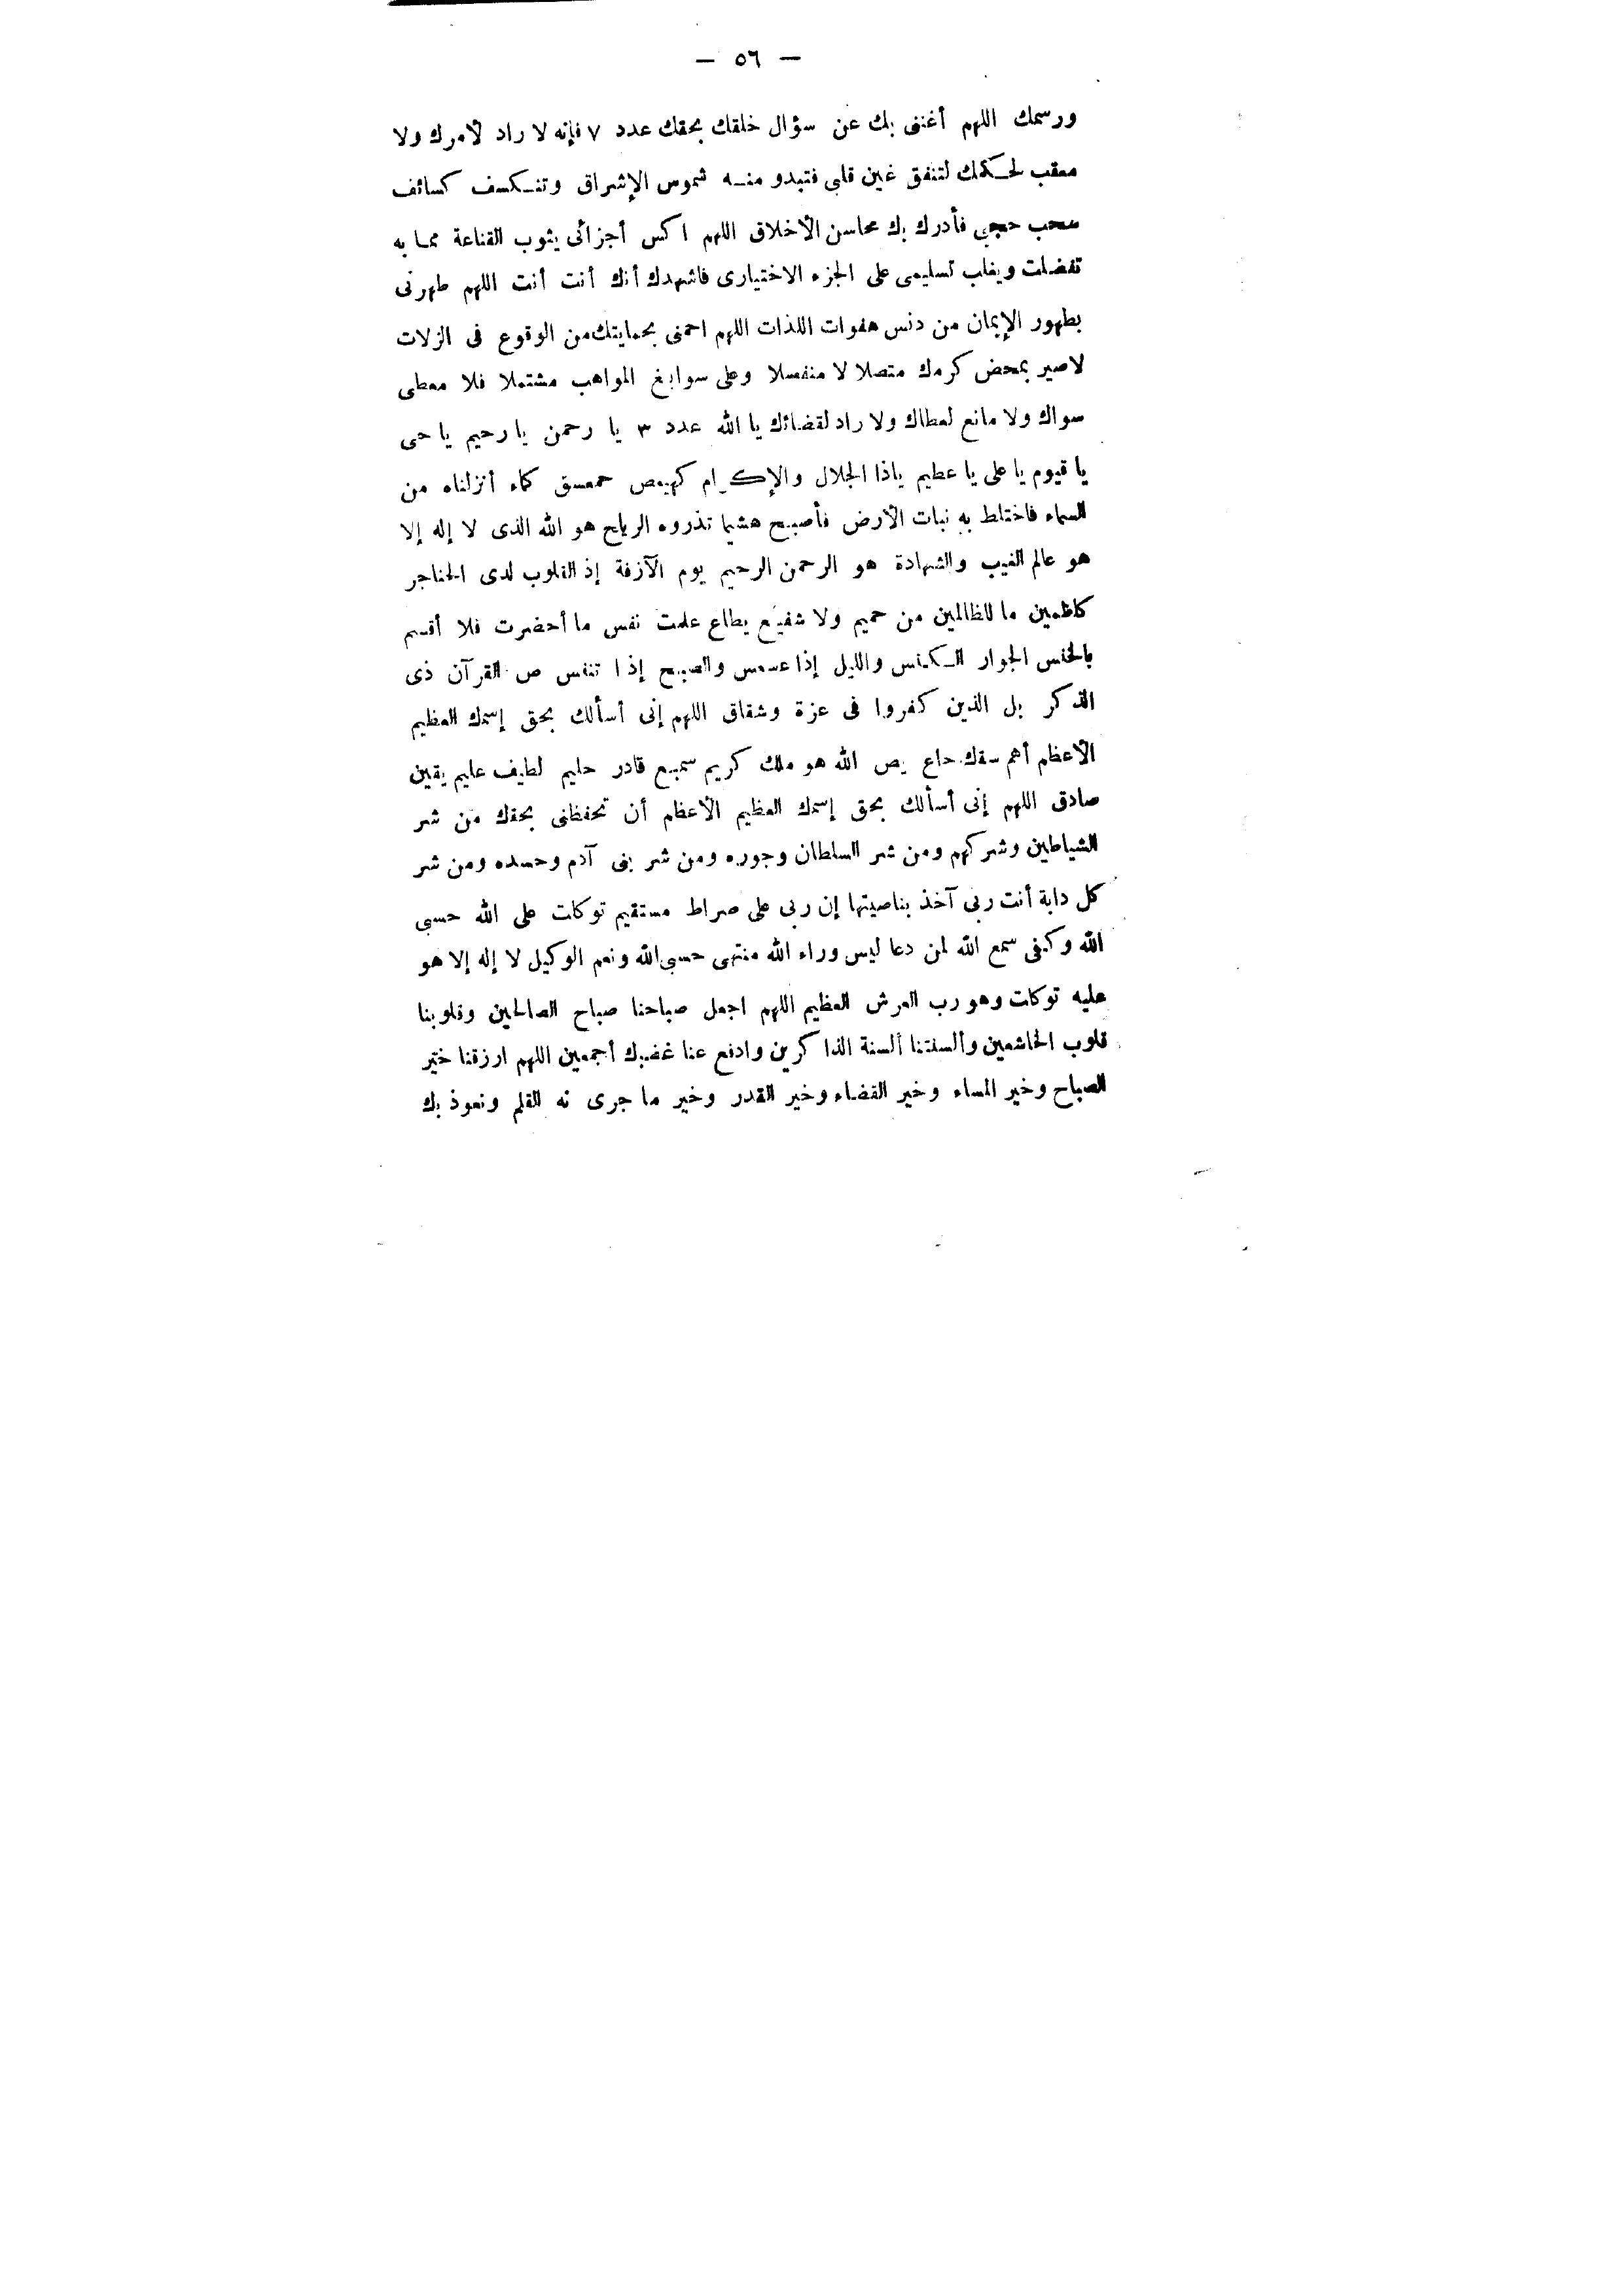 — ٥٦ —
ورسمك اللهم أغننى بك عن سؤال خلقك بحقك عدد ٧ فإنه لا راد لأمرك ولا
معقب لحكمك لتنفق غين قلبى فتبدو منه شموس الإشراق وتنكسف كسائف
سحب حجبى فأدرك بك محاسن الأخلاق اللهم اكس أجزائى بثوب القناعة مما به
تفضلت ويغلب تسليمى على الجزء الاختيارى فاشهدك أنك أنت أنت اللهم طهرنى
بطهور الإيمان من دنس هفوات اللذات اللهم احمنى بحمايتك من الوقوع فى الزلات
لاصير بمحض كرمك متصلا لا منفصلا وعلى سوابغ المواهب مشتملا فلا معطى
سواك ولا مانع لعطاك ولا راد لقضائك يا الله عدد ٣ يا رحمن يا رحيم يا حى
يا قيوم يا على يا عظيم ياذا الجلال والإكرام كهيعص حمعسق كماء أنزلناه من
السماء فاختلط به نبات الأرض فأصبح هشيما تذروه الرياح هو الله الذى لا إله إلا
هو عالم الغيب والشهادة هو الرحمن الرحيم يوم الآزفة إذ القلوب لدى الحناجر
كاظمين ما للظالمين من حميم ولا شفيع يطاع علمت نفس ما أحضرت فلا أقسم
بالخنس الجوار الكنس والليل إذا عسعس والصبح إذا تنفس ص القرآن ذى
الذكر بل الذين كفروا فى عزة وشقاق اللهم إنى أسألك بحق إسمك العظيم
الأعظم أهم سقك حاع يص الله هو ملك كريم سميع قادر حليم لطيف عليم يقين
صادق اللهم إنى أسألك بحق إسمك العظيم الأعظم أن تحفظنى بحقك من شر
الشياطين وشركهم ومن شر السلطان وجوره ومن شر بنى آدم وحسده ومن شر
كل دابة أنت ربى آخذ بناصيتها إن ربى على صراط مستقيم توكلت على الله حسبى
الله وكفى سمع الله لمن دعا ليس وراء الله منتهى حسبى الله ونعم الوكيل لا إله إلا هو
عليه توكلت وهو رب العرش العظيم اللهم اجعل صباحنا صباح الصالحين وقلوبنا
قلوب الخاشعين وألسنتنا ألسنة الذاكرين وادفع عنا غضبك أجمعين اللهم ارزقنا خير
الصباح وخير المساء وخير القضاء وخير القدر وخير ما جرى به القلم ونعوذ بك